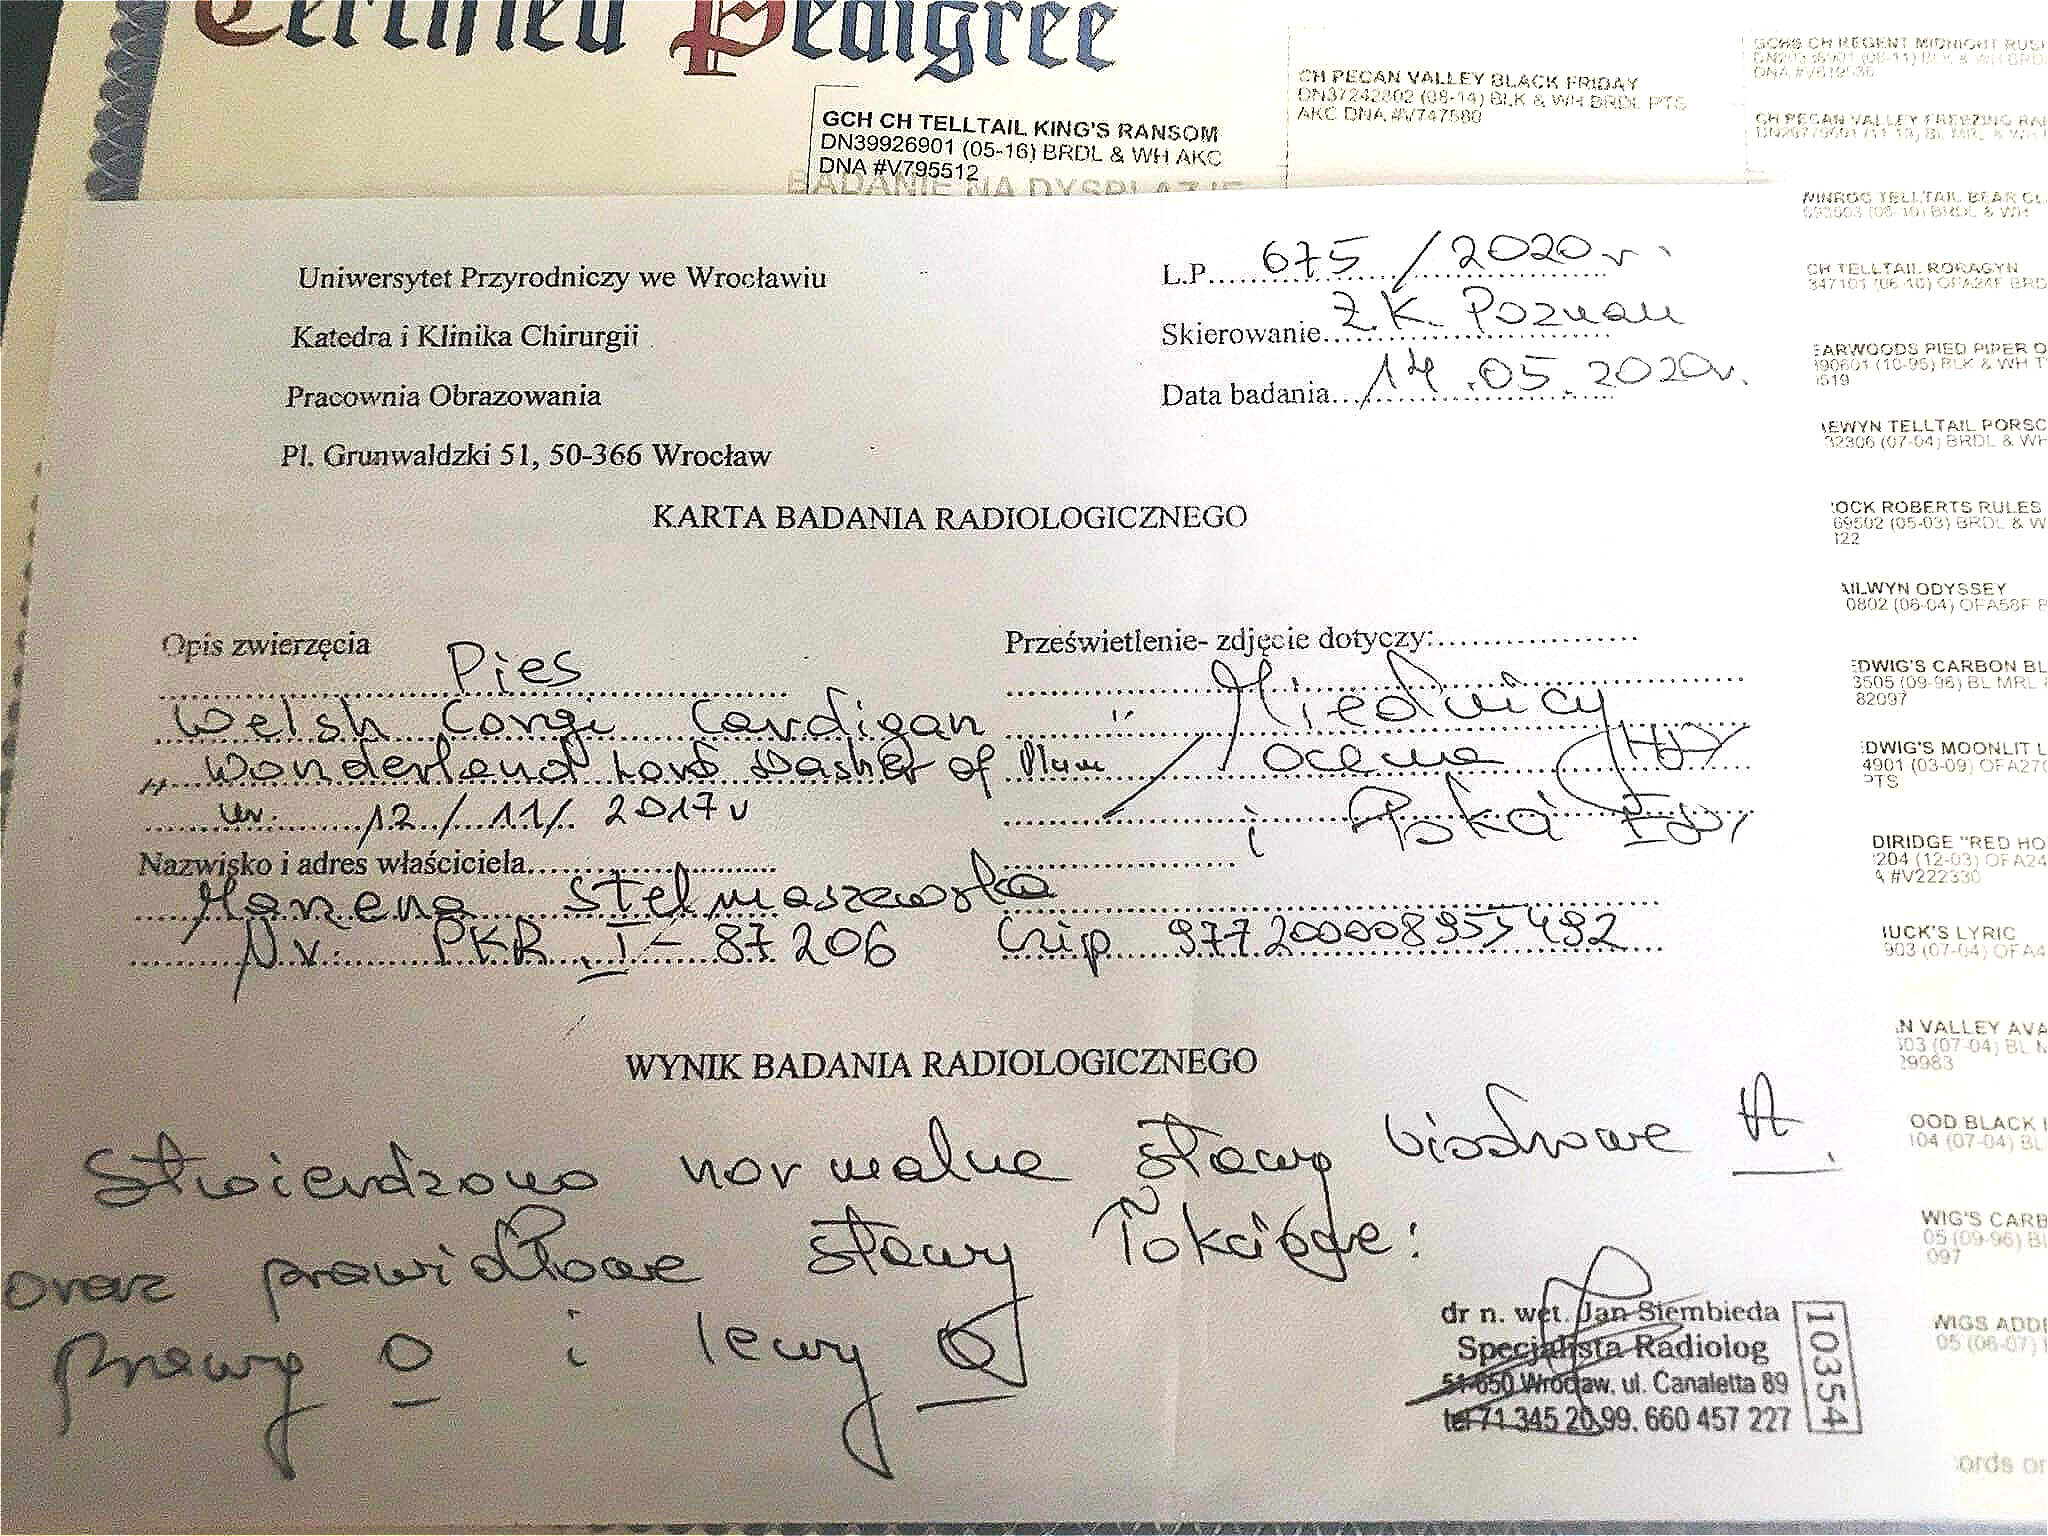 Certified Pedigree
GCH CH TELLTAIL KING'S RANSOM
DN39926901 (05-16) BRDL & WH AKC
DNA #V795512
BADANIE NA DYSPLAZJE
CH PECAN VALLEY BLACK FRIDAY
DN37242802 (08-14) BLK & WH BRDL PTS
AKC DNA #V747580
GCHS CH REGENT MIDNIGHT RUS
(08-11) BLK & WH BRD
DNA #V619536
CH PECAN VALLEY FREEZING RA
(11-13) BL MRL & WH
WINROC TELLTAIL BEAR CL
693503 (06-10) BRDL & WH
CH TELLTAIL RORAGYN
347101 (06-10) OFA24F BRD
EARWOODS PIED PIPER O
390601 (10-95) BLK & WH T
519
EWYN TELLTAIL PORSC
32306 (07-04) BRDL & WH
OCK ROBERTS RULES
69502 (05-03) BRDL & W
122
AILWYN ODYSSEY
0802 (06-04) OFA58F B
EDWIG'S CARBON BL
3505 (09-96) BL MRL
82097
EDWIG'S MOONLIT L
4901 (03-09) OFA27G
PTS
DIRIDGE "RED HO
204 (12-03) OFA24
A #V222330
UCK'S LYRIC
903 (07-04) OFA4
N VALLEY AVA
503 (07-04) BL M
29983
OOD BLACK
104 (07-04) BL
WIG'S CARB
05 (09-96) BL
097
WIGS ADDE
05 (06-07)
ords or
Uniwersytet Przyrodniczy we Wrocławiu
Katedra i Klinika Chirurgii
Pracownia Obrazowania
Pl. Grunwaldzki 51, 50-366 Wrocław
L.P. 675/2020 r.
Skierowanie Z.K. Poznań
Data badania 14.05.2020r.
KARTA BADANIA RADIOLOGICZNEGO
Opis zwierzęcia Pies
Welsh Corgi Cardigan "
" Wonderland Lord Dasher of Mum
ur. 12/11/2017 r
Prześwietlenie- zdjęcie dotyczy:
Miednicy
ocena HD
i Łokcia ED
Nazwisko i adres właściciela
Marzena Stelmaszewska
Nr. PKR. I - 87206 Czip 977200008955492
WYNIK BADANIA RADIOLOGICZNEGO
Stwierdzono normalne stawy biodrowe A.
oraz prawidłowe stawy łokciowe:
prawy 0 i lewy 0
dr n. wet. Jan Siembieda
Specjalista Radiolog
51-650 Wrocław, ul. Canaletta 89
tel 71 345 20 99, 660 457 227
10354